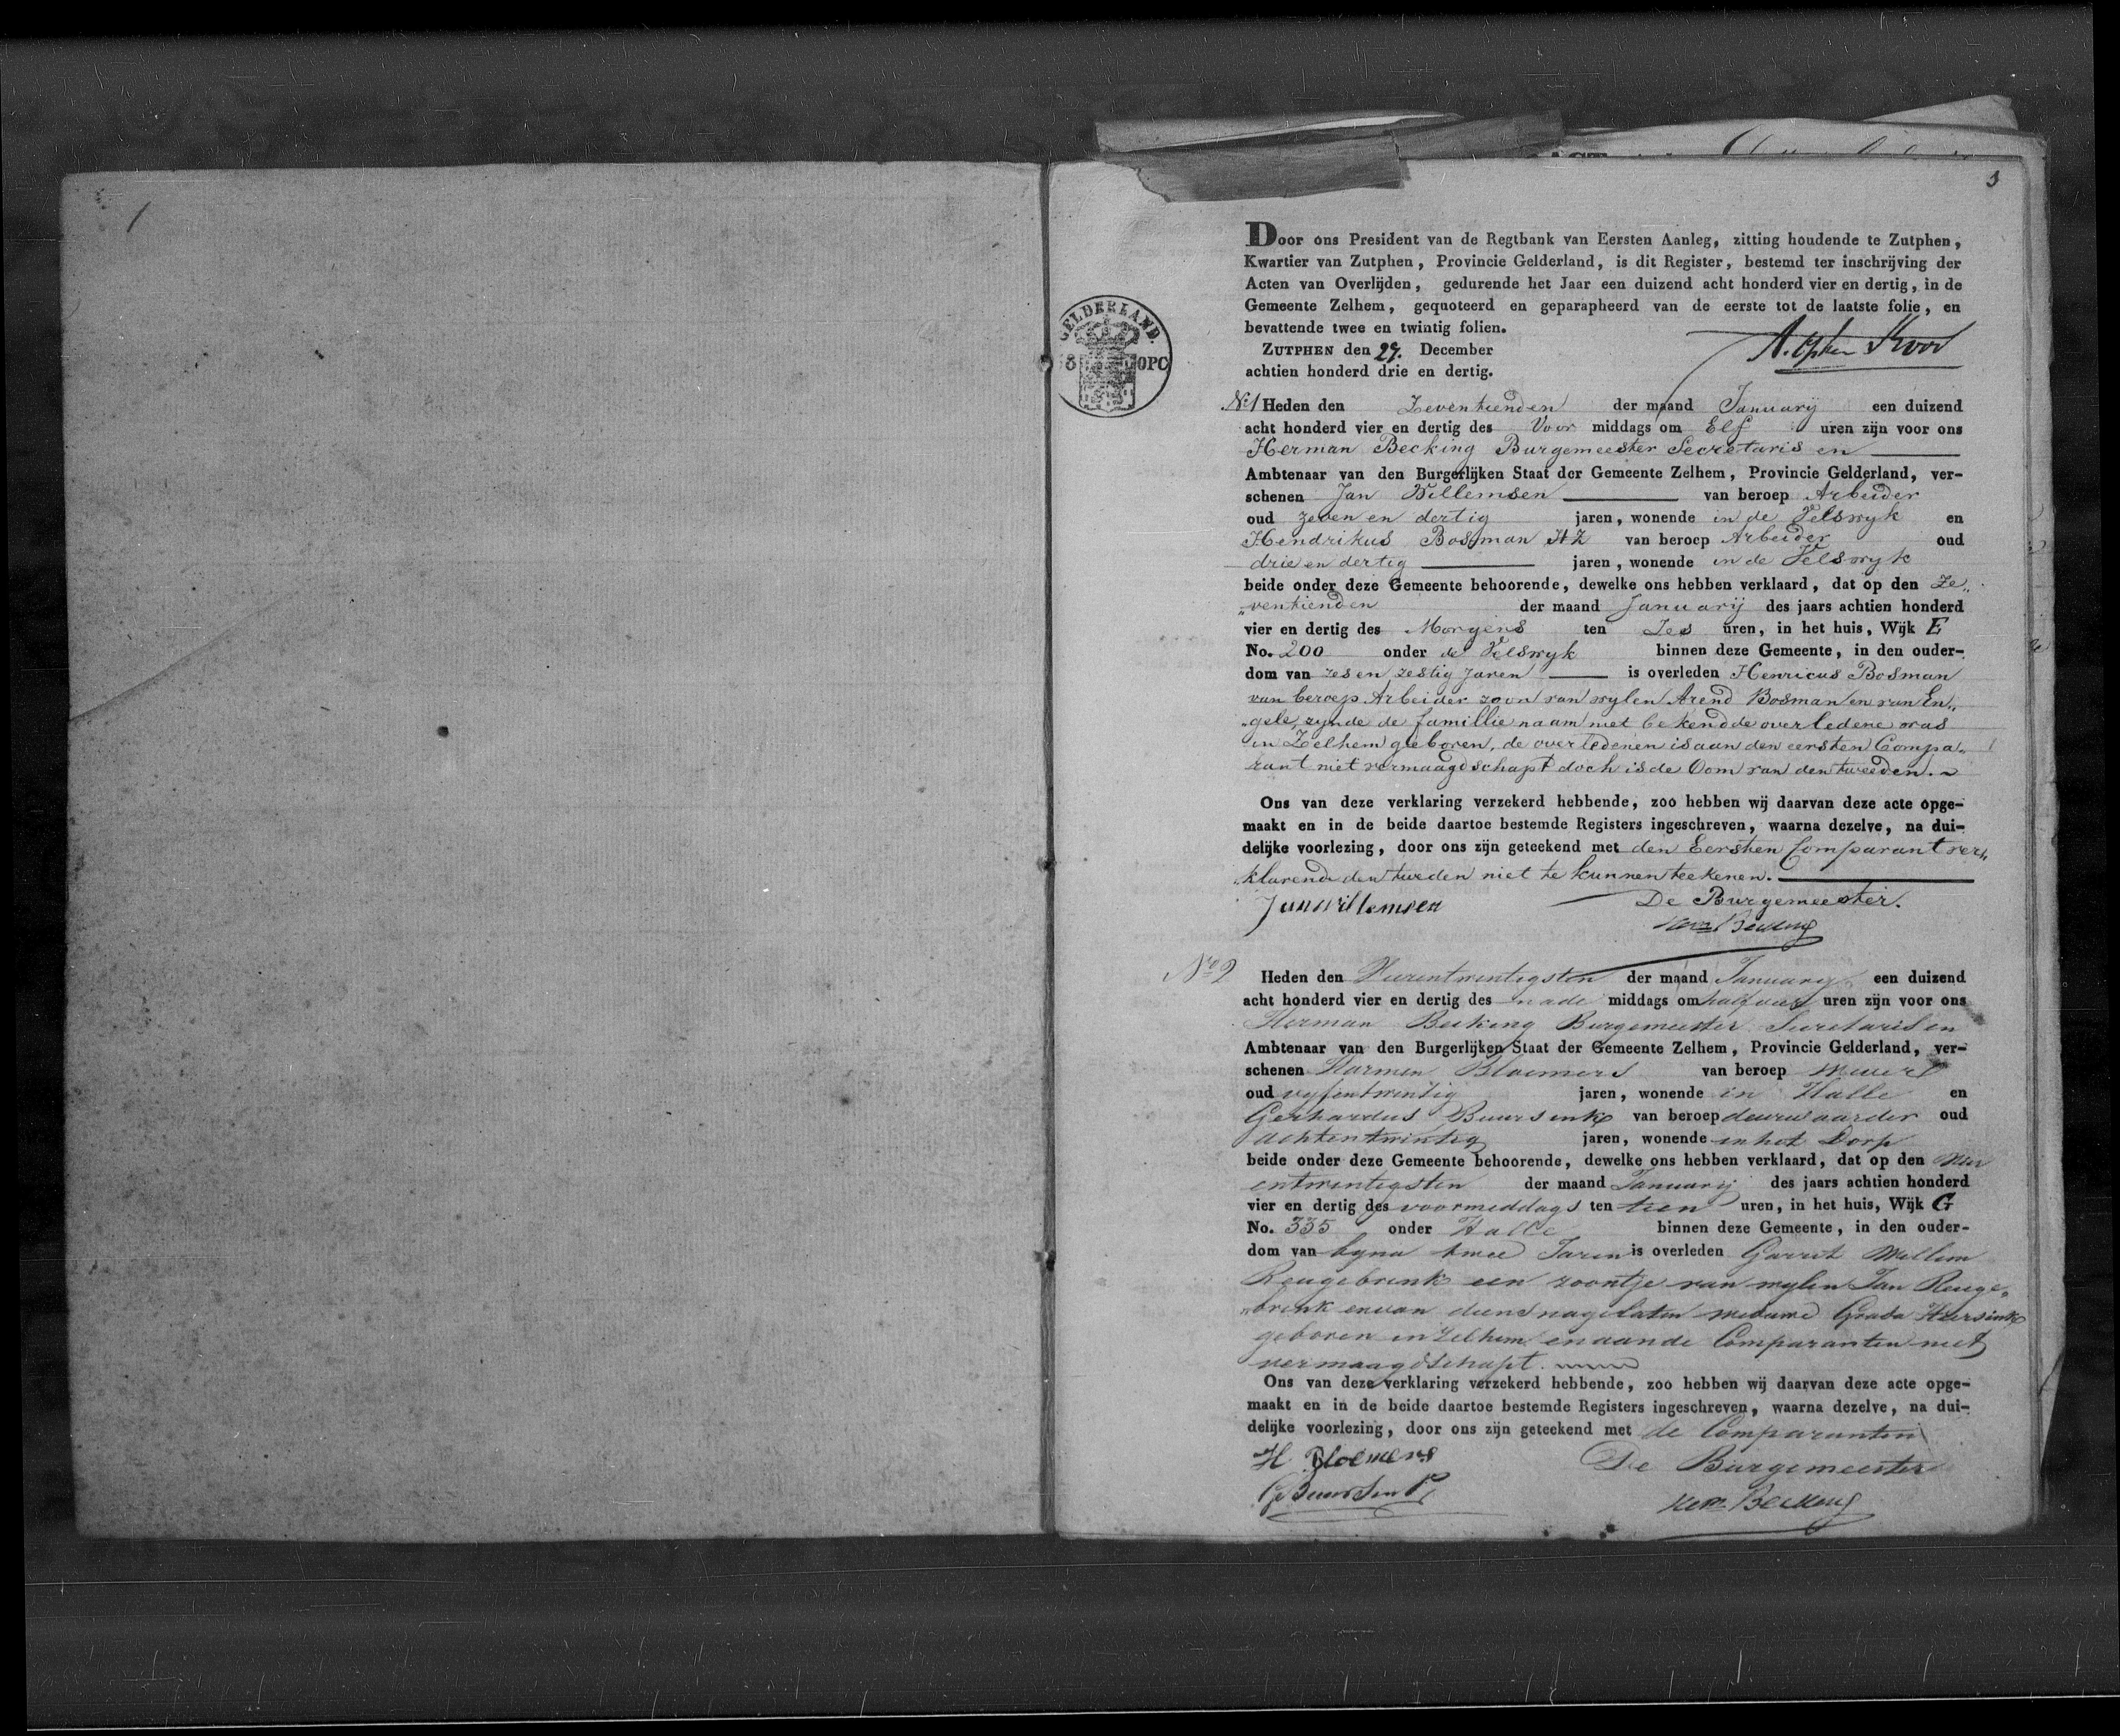 1
3
Door ons President van de Regtbank van Eersten Aanleg, zitting houdende te Zutphen,
Kwartier van Zutphen, Provincie Gelderland, is dit Register, bestemd ter inschrijving der
Acten van Overlijden, gedurende het Jaar een duizend acht honderd vier en dertig, in de
Gemeente Zelhem, gequoteerd en geparapheerd van de eerste tot de laatste folie, en
bevattende twee en twintig folien.
GELDERLAND.
OPC
ZUTPHEN den 27. December
achtien honderd drie en dertig.
No 1 Heden den Zeventienden der maand Januarij een duizend
acht honderd vier en dertig des Voor middags om Elf uren zijn voor ons
Herman Becking Burgemeester Secretaris en
Ambtenaar van den Burgerlijken Staat der Gemeente Zelhem, Provincie Gelderland, ver-
schenen Jan Willemsen van beroep Arbeider
oud zeven en dertig jaren, wonende in de Velswyk en
Hendrikus Bosman HZ van beroep Arbeider oud
drie en dertig jaren, wonende in de Velswyk
beide onder deze Gemeente behoorende, dewelke ons hebben verklaard, dat op den Ze„
„ventienden der maand Januarij des jaars achtien honderd
vier en dertig des Morgens ten Zes uren, in het huis, Wijk E
No. 200 onder de Velswyk binnen deze Gemeente, in den ouder-
dom van zes en zestig Jaren is overleden Henricus Bosman
van beroep Arbeider zoon van wylen Arend Bosman en van En„
„gele, zynde de famillie naam niet bekend de overledene was
in Zelhem geboren, de overledenen is aan den eersten Compa„
rant niet vermaagdschapt doch is de Oom van den tweeden.
Ons van deze verklaring verzekerd hebbende, zoo hebben wij daarvan deze acte opge-
maakt en in de beide daartoe bestemde Registers ingeschreven, waarna dezelve, na dui-
delijke voorlezing, door ons zijn geteekend met den Eersten Comparant ver„
„klarende den tweden niet te kunnen teekenen.
Jan willemsen De Burgemeester.
Herm Becking
No 2 Heden den Vierentwintigsten der maand Januarij een duizend
acht honderd vier en dertig des nade middags om half vier uren zijn voor ons
Herman Becking Burgemeester Secretaris en
Ambtenaar van den Burgerlijken Staat der Gemeente Zelhem, Provincie Gelderland, ver-
schenen Harmen Bloemers van beroep Wever
oud vyfentwintig jaren, wonende in Halle en
Gerhardus Buursink van beroep deurwaarder oud
achtentwintig jaren, wonende in het Dorp
beide onder deze Gemeente behoorende, dewelke ons hebben verklaard, dat op den vier
entwintigsten der maand Januarij des jaars achtien honderd
vier en dertig des voormiddags ten tien uren, in het huis, Wijk G
No. 335 onder Halle binnen deze Gemeente, in den ouder-
dom van byna twee Jaren is overleden Garrit Willem
Reugebrink een zoontje van wylen Jan Reuge„
„brink en van diens nagelaten weduwe Grada
geboren in Zelhem en aan de Comparanten niet
vermaagdschapt.
Ons van deze verklaring verzekerd hebbende, zoo hebben wij daarvan deze acte opge-
maakt en in de beide daartoe bestemde Registers ingeschreven, waarna dezelve, na dui-
delijke voorlezing, door ons zijn geteekend met de Comparanten
H Bloemers De Burgemeester
G Buursink Herm Becking